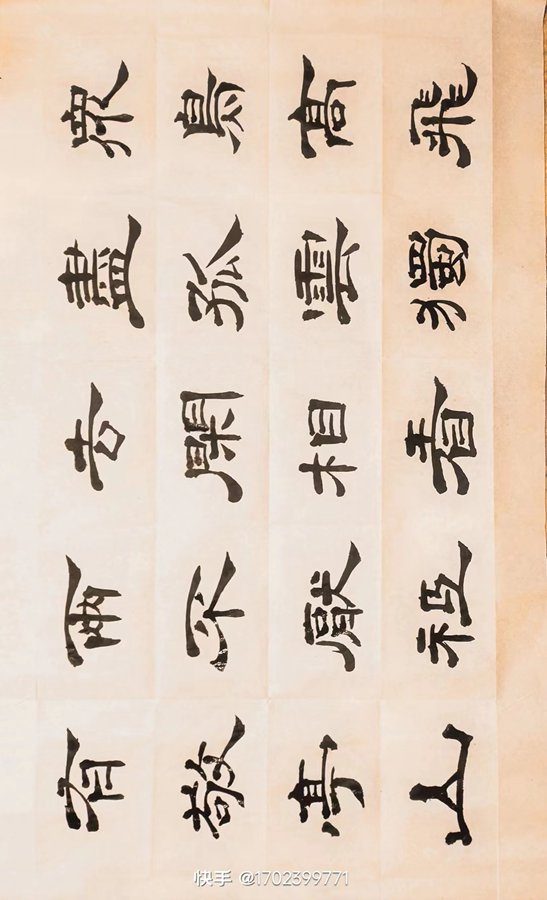 眾鳥高飛
盡孤雲獨
去閑相看
兩不厭祇
有敬亭山
快手 @1702399771